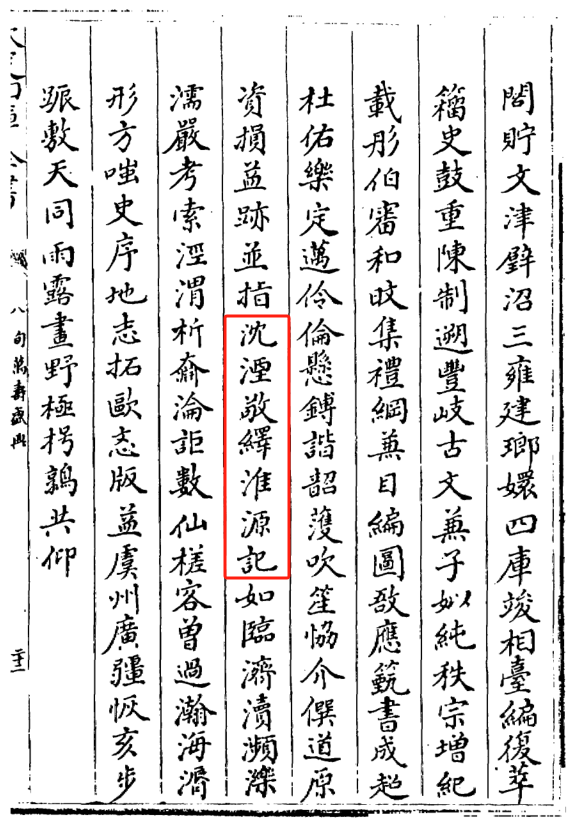 閣貯文津璧沼三雍建瑯嬛四庫竣相臺編復萃
籀史鼓重陳制遡豐岐古文蕪子姒純秩宗增紀
載彤伯審和旼集禮綱兼目編圖啟應範書成起
杜佑樂定邁伶倫懸鎛諧韶頀吹笙恊介僎道原
資損益跡並指沈湮敬繹淮源記如臨濟瀆瀕濼
濡嚴考索涇渭析龠淪詎數仙槎容曾過瀚海漘
形方嗤史序地志拓歐志版益虞州廣疆恢亥步
賑敷天同雨露畫野極枵鶉共仰
八旬萬壽盛典
二十二